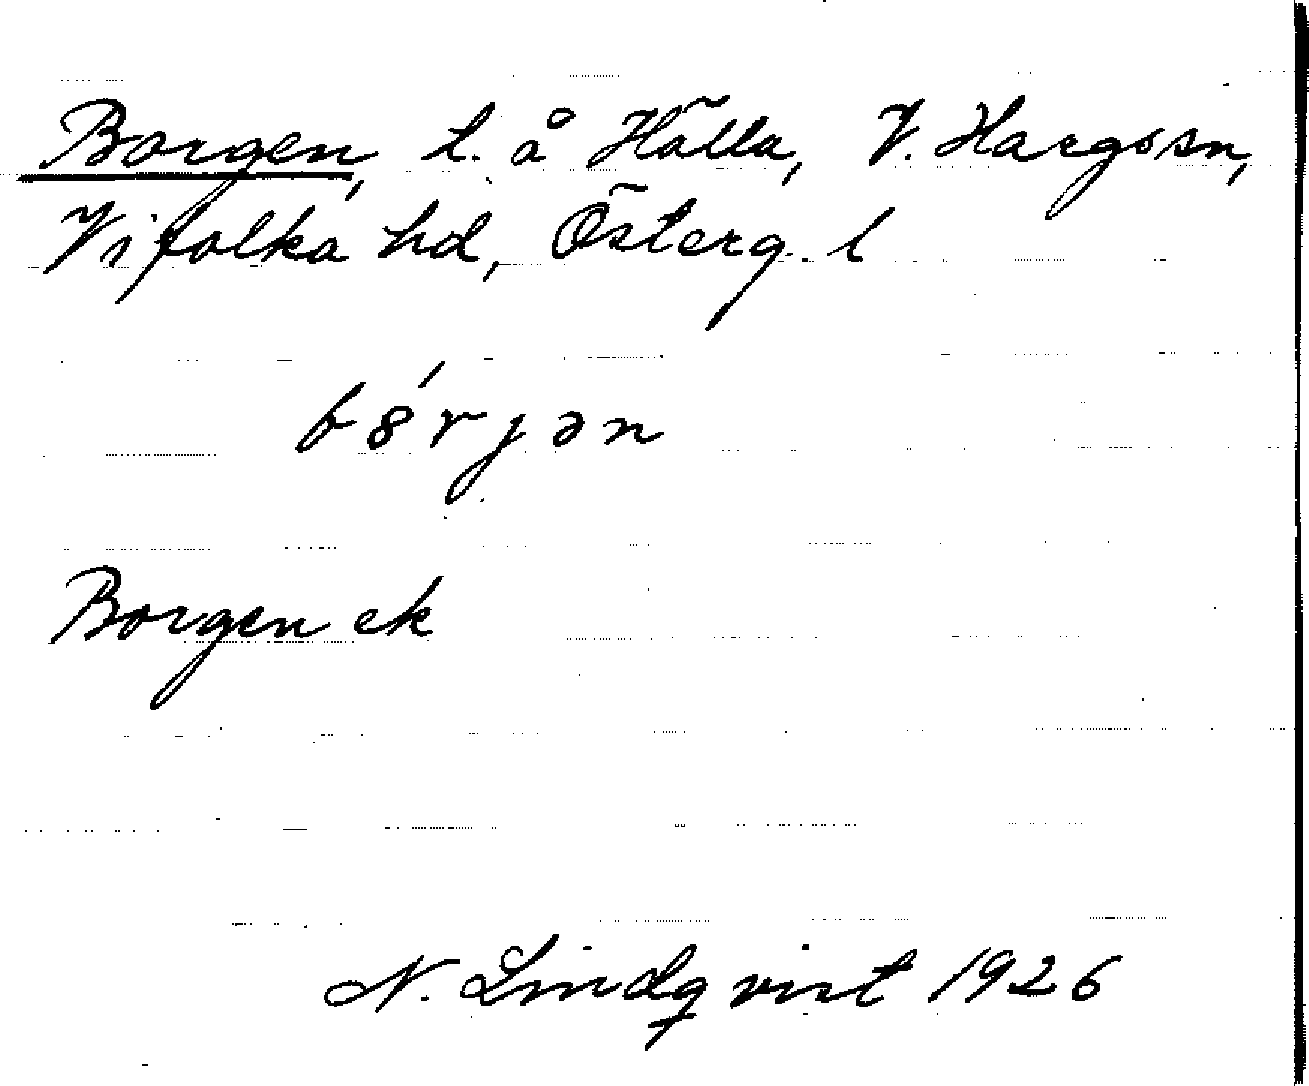 Borgen, t. å Hälla, V. Hargs sn,
Vifolka hd, Österg. l
b8́rjən
Borgen ek
N. Lindqvist 1926